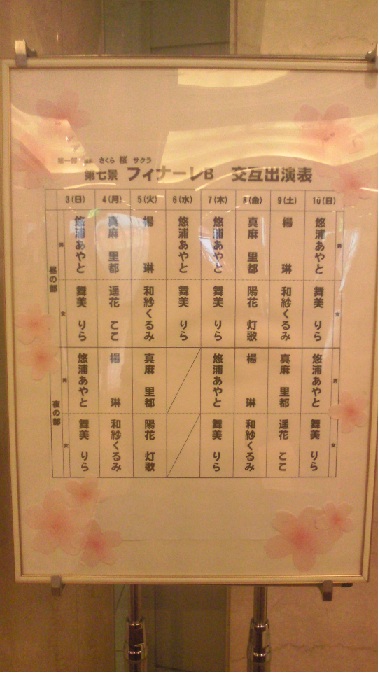 さくら 桜 サクラ
第七景 フィナーレB 交互出演表
3(日) 4(月) 5(火) 6(水) 7(木) 8(金) 9(土) 10(日)
昼の部
悠浦あやと 真麻 里都 楊 琳 悠浦あやと 悠浦あやと 真麻 里都 楊 琳 悠浦あやと
舞美 りら 遥花 ここ 和紗くるみ 舞美 りら 舞美 りら 陽花 灯歌 和紗くるみ 舞美 りら
夜の部
悠浦あやと 楊 琳 真麻 里都 悠浦あやと 楊 琳 真麻 里都 悠浦あやと
舞美 りら 和紗くるみ 陽花 灯歌 舞美 りら 和紗くるみ 遥花 ここ 舞美 りら